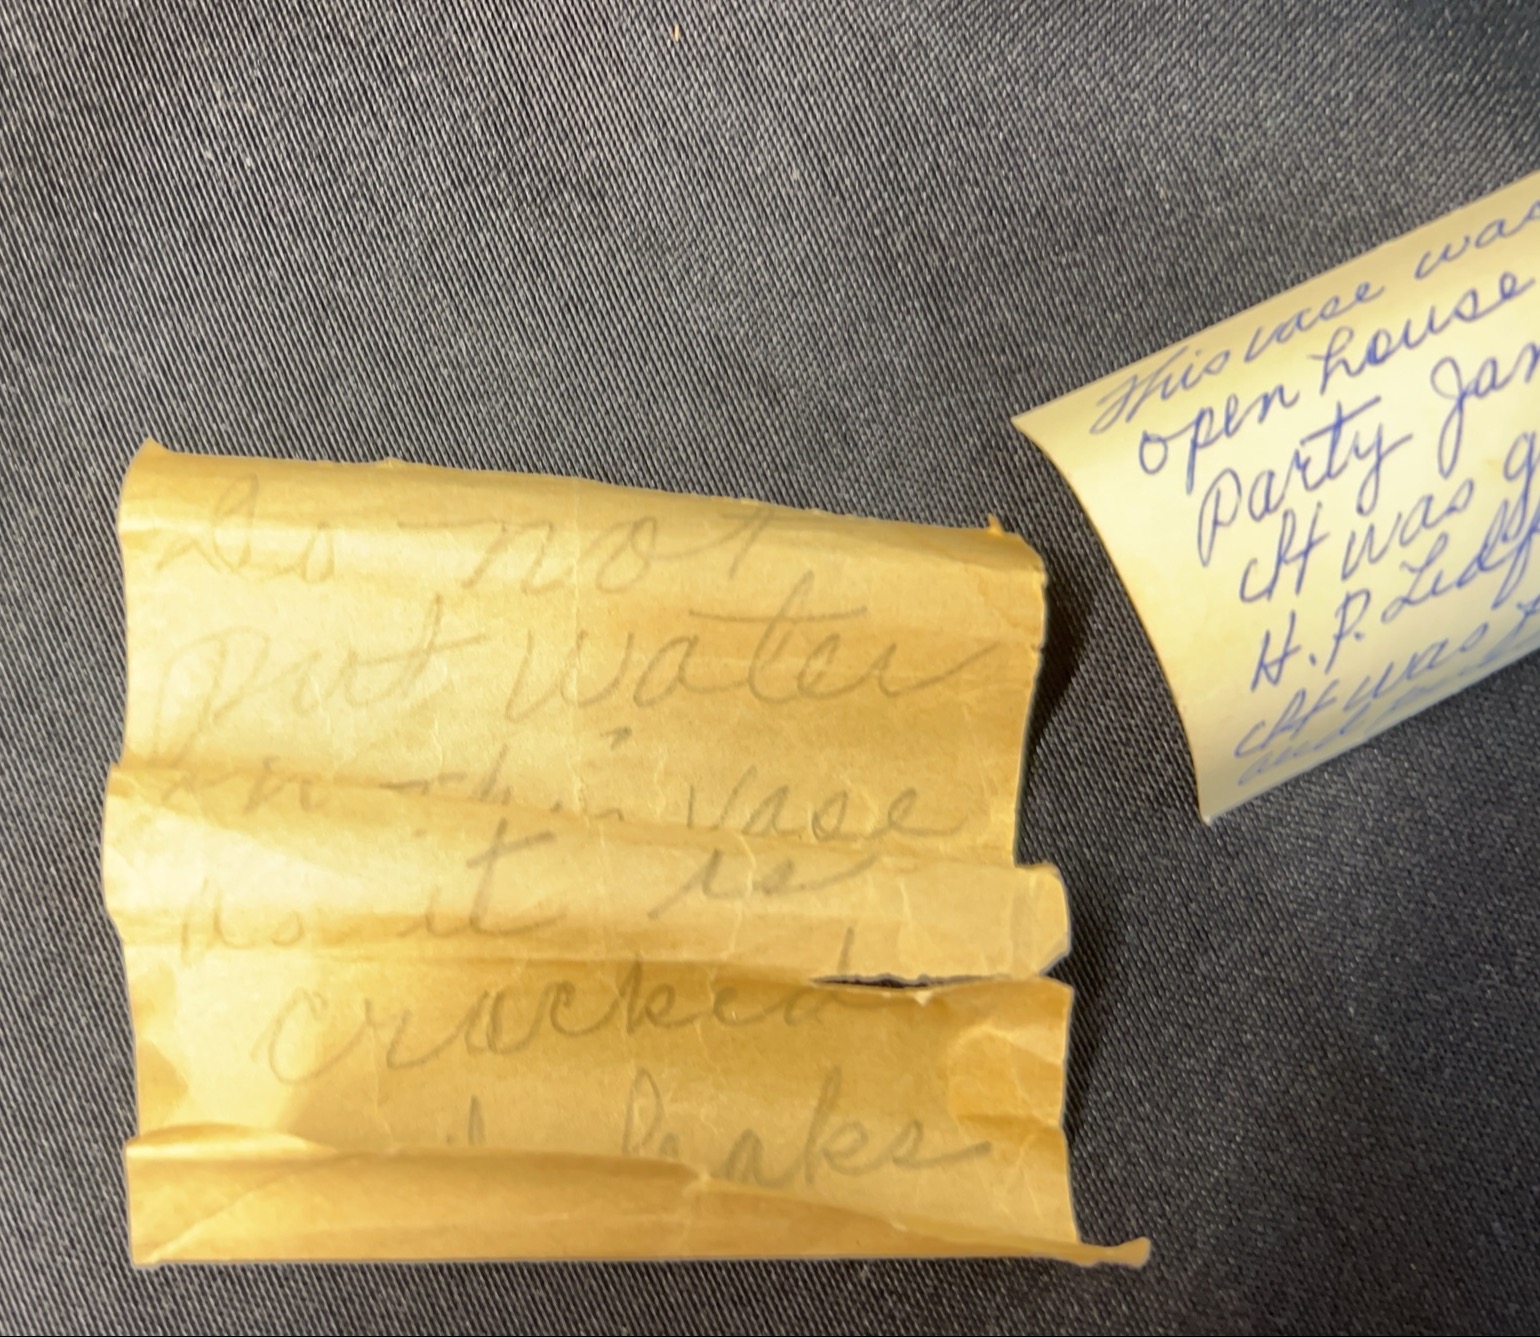 Do not
put water
in this vase
as it is
cracked
leaks
This vase was
open house
Party Jan
It was g
H. P. Ledf
It was
and